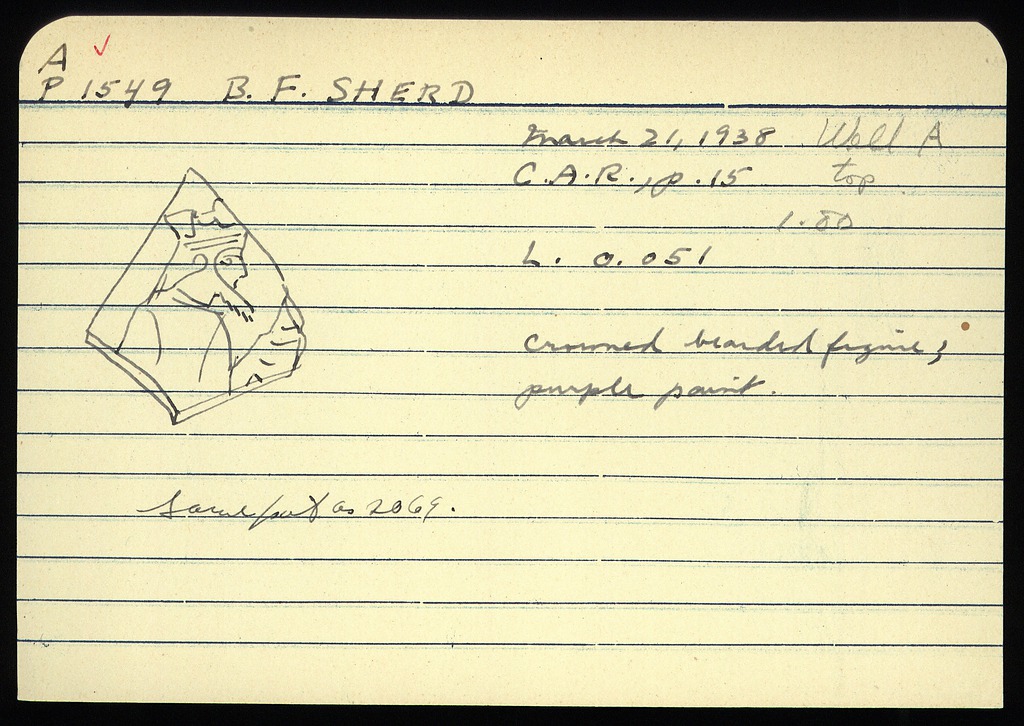 A ✓
P 1549 B. F. SHERD
March 21, 1938 Well A
C.A.R., p. 15 top
1.80
L. 0.051
crowned bearded figure;
purple paint.
same pot as 2069.